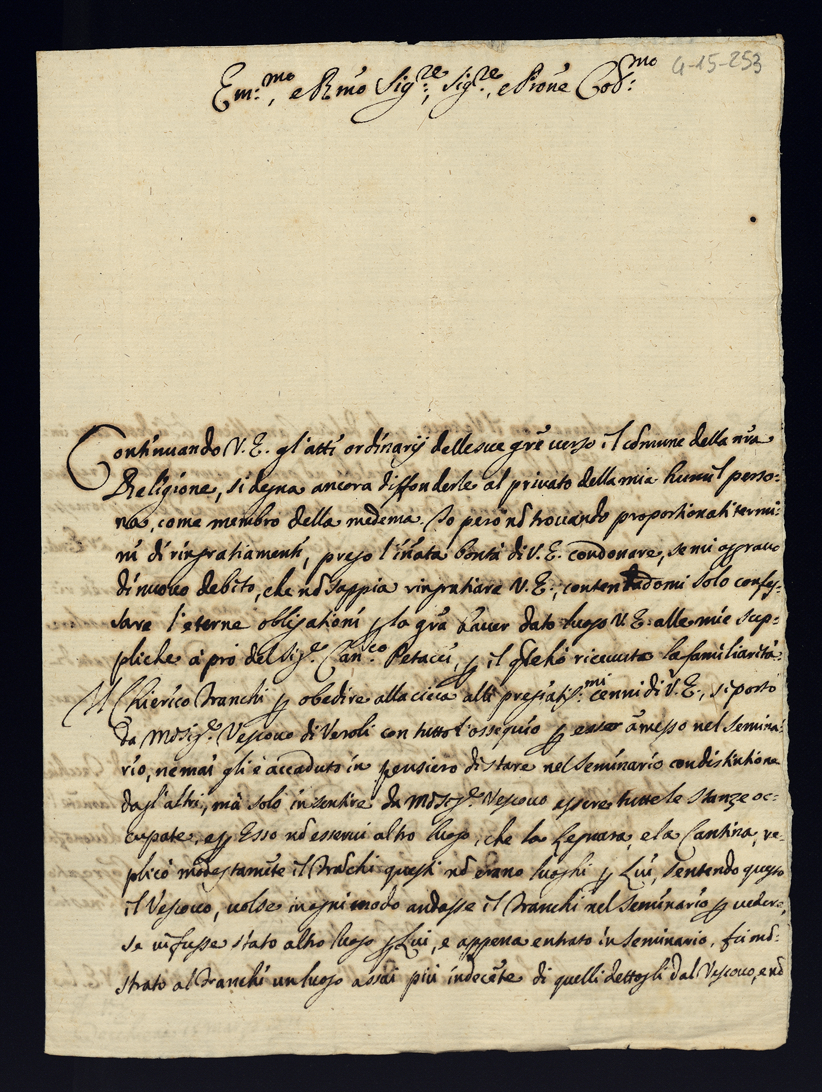 4-15-253
Em:mo, e Rmo Sigre:, Sigre:, e Prone Colmo:
Continuando V. E. gl'atti ordinarij delle sue grẽ verso il cõmune della nrã
Religione, si degna ancora diffonderle al privato della mia humil perso-
na, come membro della medema. Io però nõ trovando proportionati termi-
ni di ringratiamenti, prego l'inata bontà di V. E. condonare, se mi aggravo
di nuovo debito, che nõ sappia ringratiare V. E., contentãdomi solo confes-
sare l'eterne obligationi p la grã haver dato luogo V. E. alle mie sup-
pliche à prò del Sigr. Canco. Petacci, p il qle hò ricevuta la familiarità.
Il Chierico Franchi p obedire alla cieca alli pregiatissmi: cenni di V. E., si portò
da Mõsigr. Vescovo di Veroli con tutto l'ossequio p esser amesso nel semina-
rio, ne mai gli è accaduto in pensiero di stare nel seminario con distintione
dagl'altri, mà solo in sentire da Mõsigr. Vescovo essere tutte le stanze oc-
cupate, e p Esso nõ esservi altro luogo, che la Legnara, e la Cantina, re-
plicò modestamẽte il Frãchi questi nõ erano luoghi p Lui, sentendo questo
il Vescovo, volse in ogni modo andasse il Franchi nel Seminario p vedere,
se vi fusse stato altro luogo p Lui, e appena entrato in seminario, fù mõ-
strato al Franchi un luogo assai più indecẽte di quelli dettogli dal Vescovo, e nõ